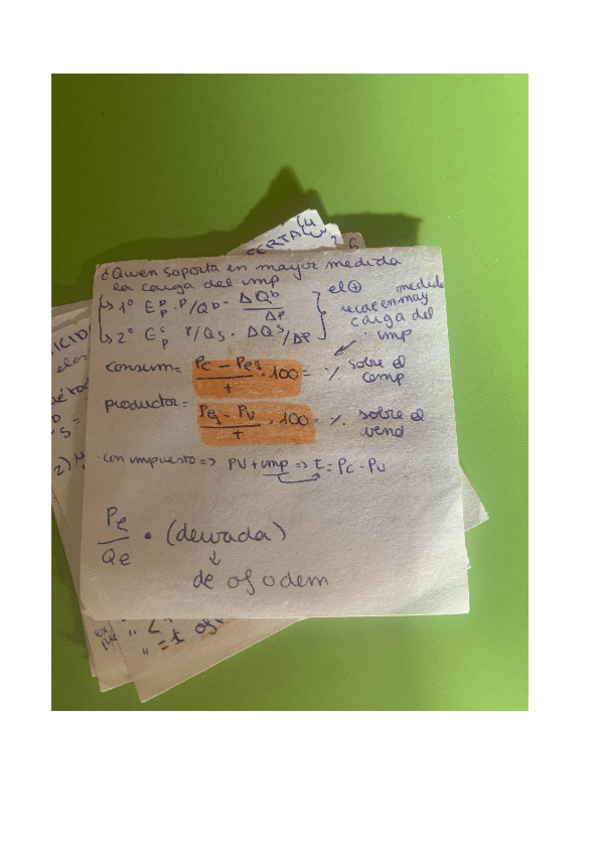 CERTA
¿Quien soporta en mayor medida
la carga del imp
↳ 1º E_p^D P/Q^D · ΔQ^D/ΔP
↳ 2º E_p^S P/Q_S · ΔQ^S/ΔP
el ⊕ medida
recae en may
carga del
imp
consum = (Pc - Peq)/t · 100 = % sobre el
comp
productor = (Peq - Pv)/t · 100 = % sobre el
vend
· con impuesto => PV + imp => t = Pc - Pv
Pe/Qe · (derivada)
↓
de of o dem
2)
" = 1 of